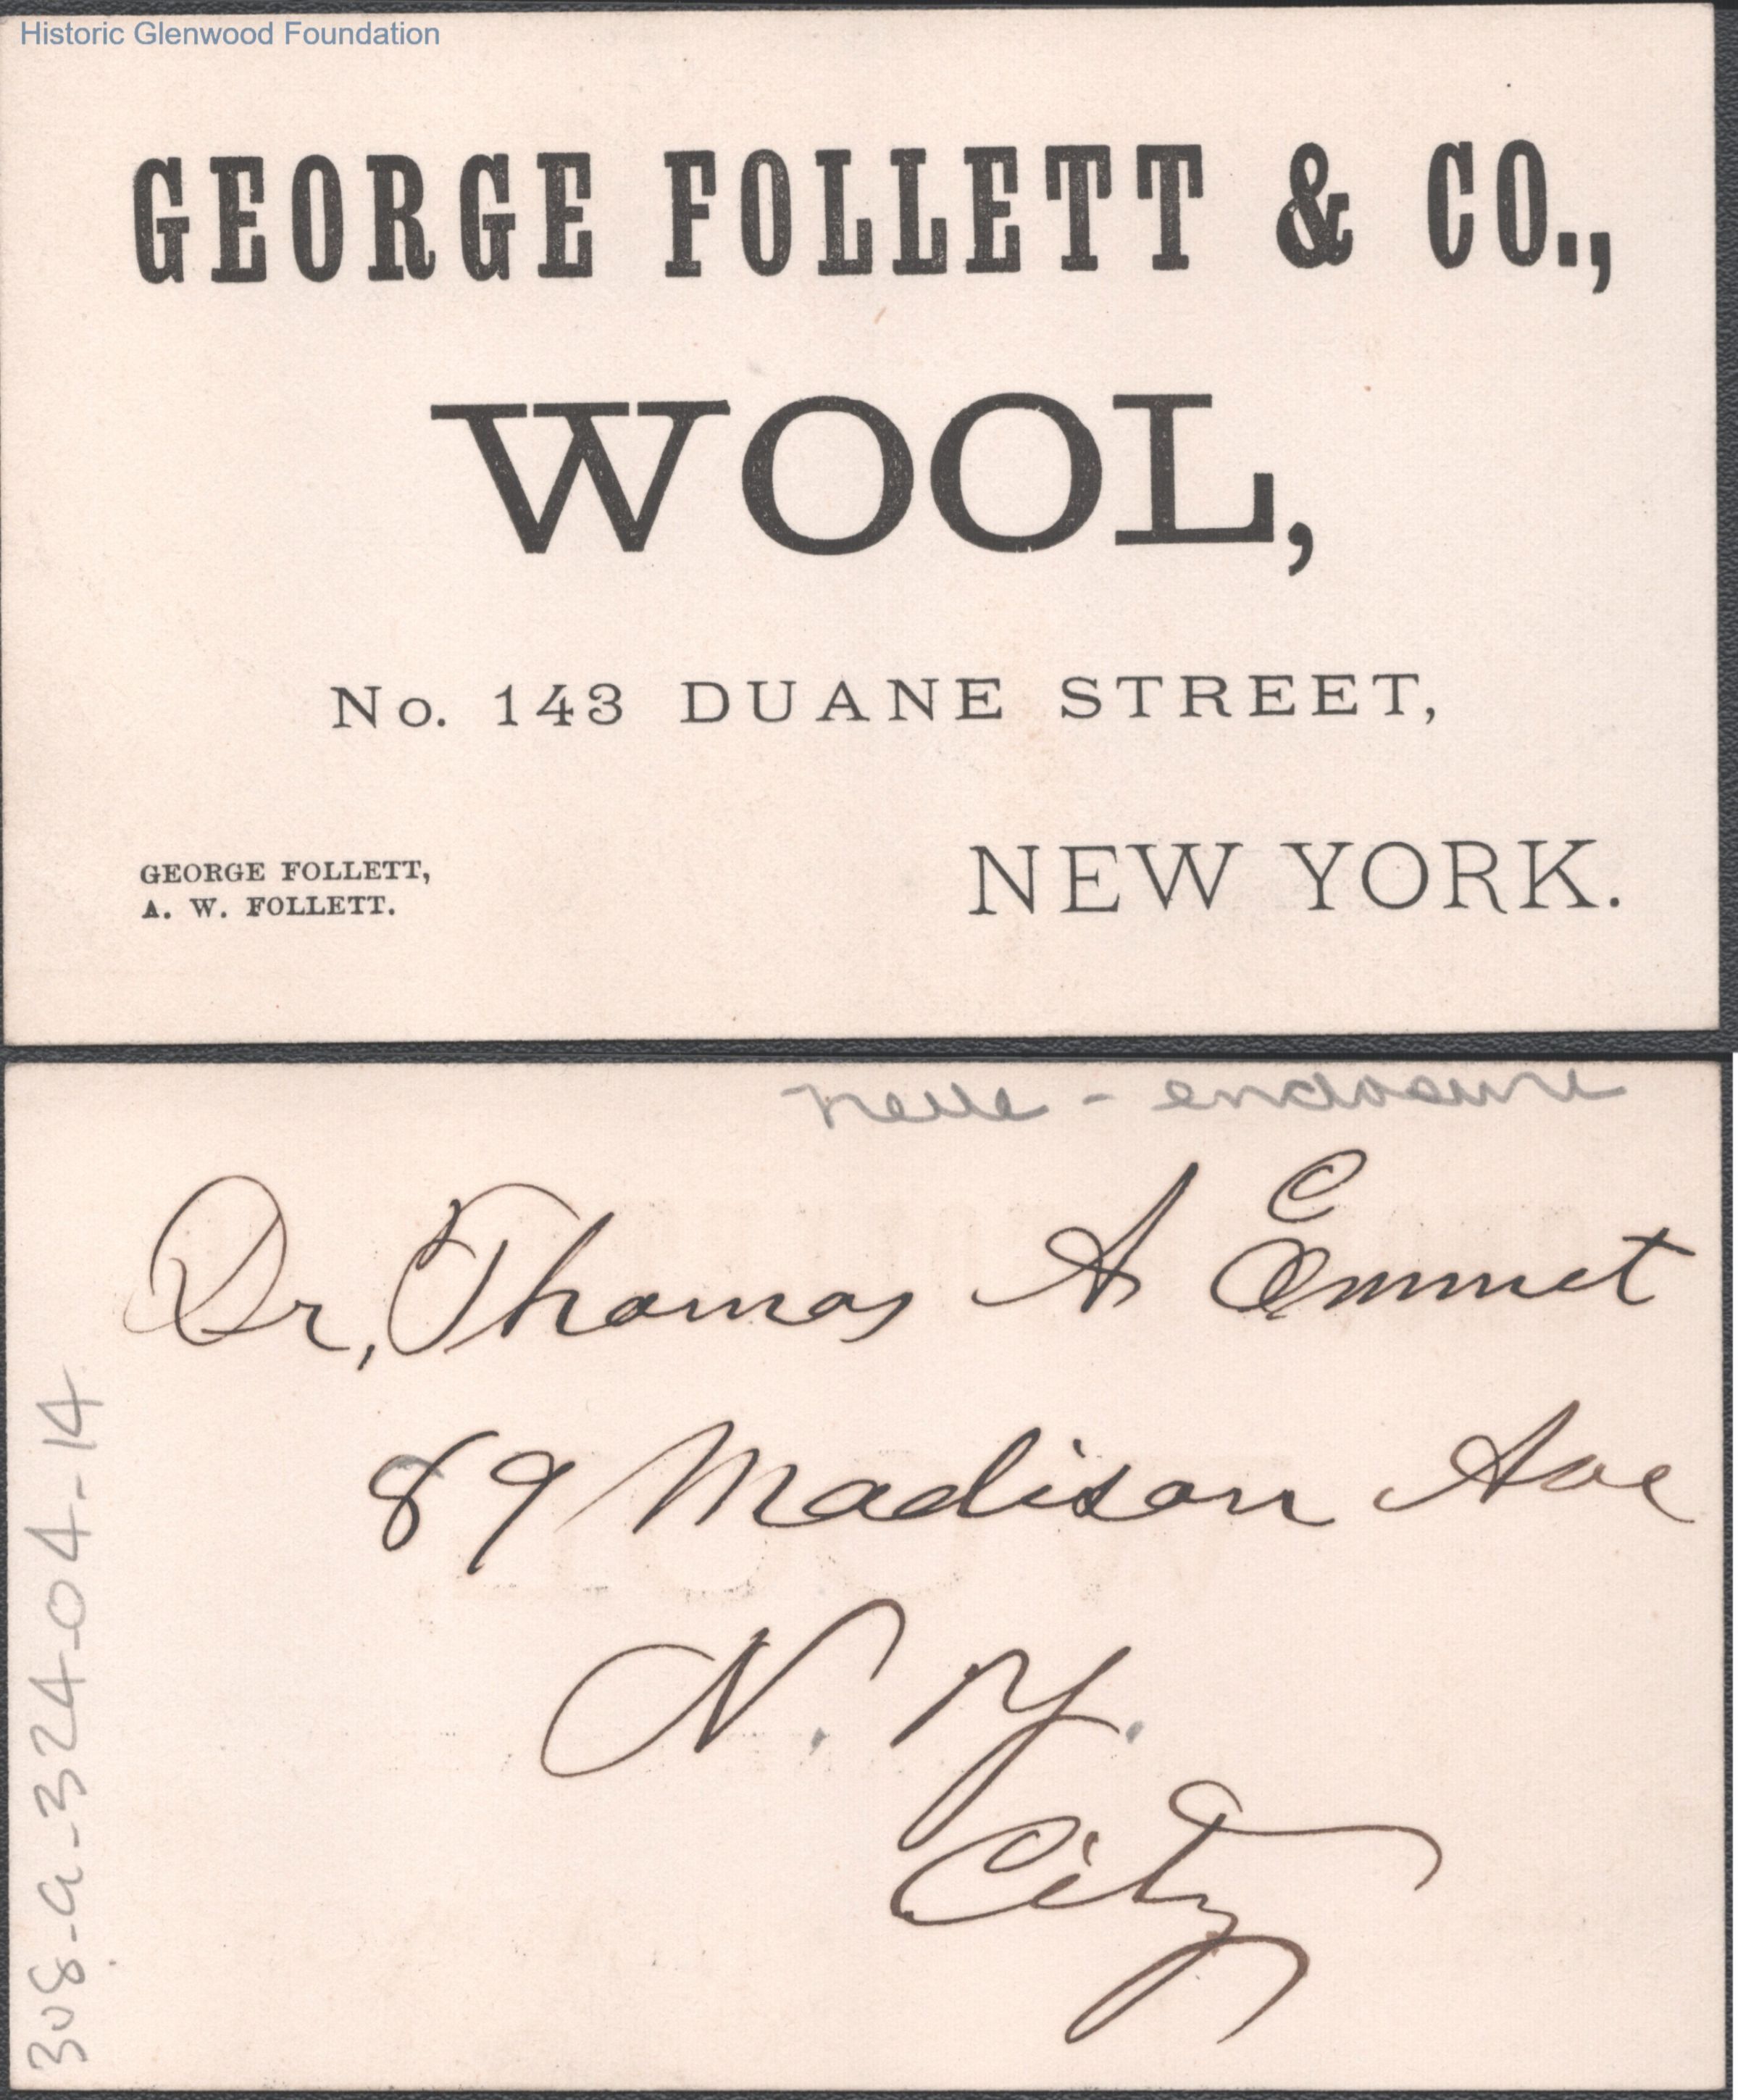 Historic Glenwood Foundation
GEORGE FOLLETT & CO.,
WOOL,
No. 143 DUANE STREET,
NEW YORK.
GEORGE FOLLETT,
A. W. FOLLETT.
- enclosure
Dr, Thomas A Emmet
89 Madison Ave
N. Y.
City
308-a-324-04-14